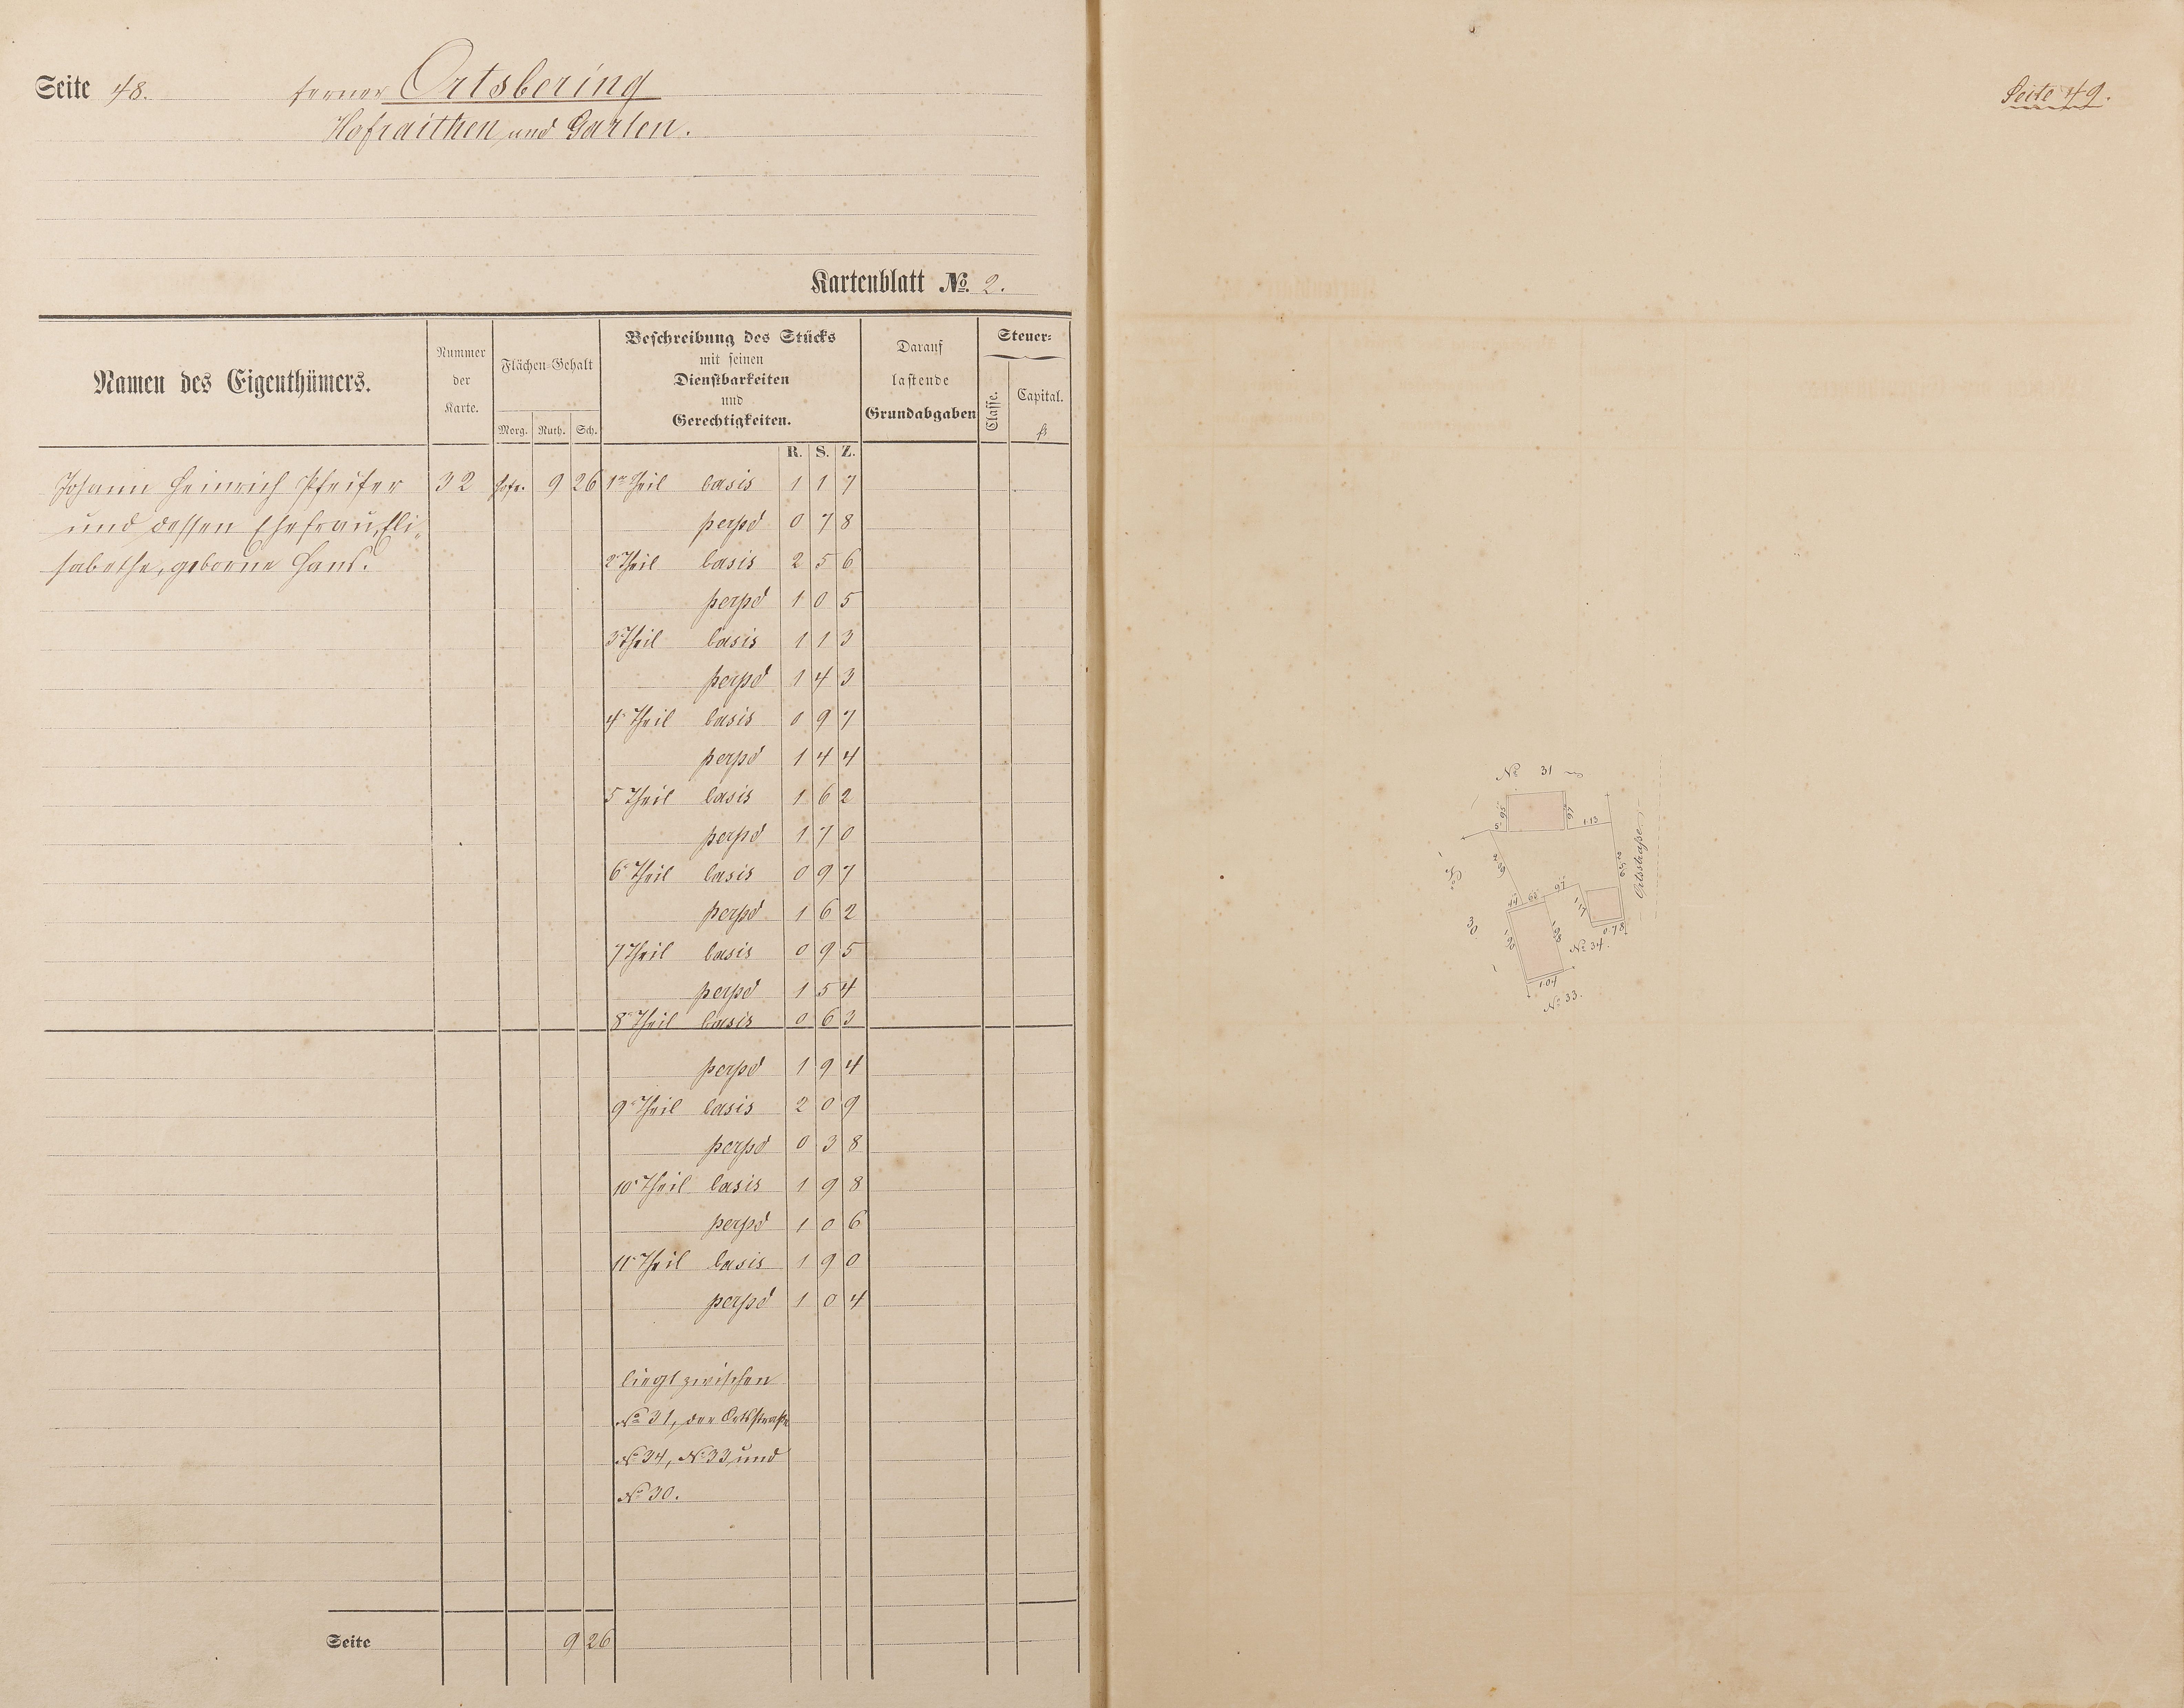 Seite 48. ferner Ortsbering
Hofraithen und Garten.
Kartenblatt No. 2.
Namen des Eigenthümers.
Nummer
der
Karte.
Flächen-Gehalt
Morg. Ruth. Sch.
Beschreibung des Stücks
mit seinen
Dienstbarkeiten
und
Gerechtigkeiten.
Darauf
lastende
Grundabgaben
Steuer-
Classe.
Capital.
fl
R. S. Z.
Johann Heinrich Pfeifer 32 Hofr. 9 26 1r Theil basis 1 1 7
und dessen Ehefrau, Eli- perpd 0 7 8
sabethe, geborne Hans. 2r Theil basis 2 5 6
perpd 1 0 5
3r Theil basis 1 1 3
perpd 1 4 3
4r Theil basis 0 9 7
perpd 1 4 4
5r Theil basis 1 6 2
perpd 1 7 0
6r Theil basis 0 9 7
perpd 1 6 2
7r Theil basis 0 9 5
perpd 1 5 4
8r Theil basis 0 6 3
perpd 1 9 4
9r Theil basis 2 0 9
perpd 0 3 8
10r Theil basis 1 9 8
perpd 1 0 6
11r Theil basis 1 9 0
perpd 1 0 4
liegt zwischen
No 31, der Ortsstraße
No 34, No 33 und
No 30.
Seite 9 26
Seite 49.
No 31
95
97
5
1.13
Ortsstraße
44 66 97
1.17
0.78
No 34.
30
1.04
No 33.